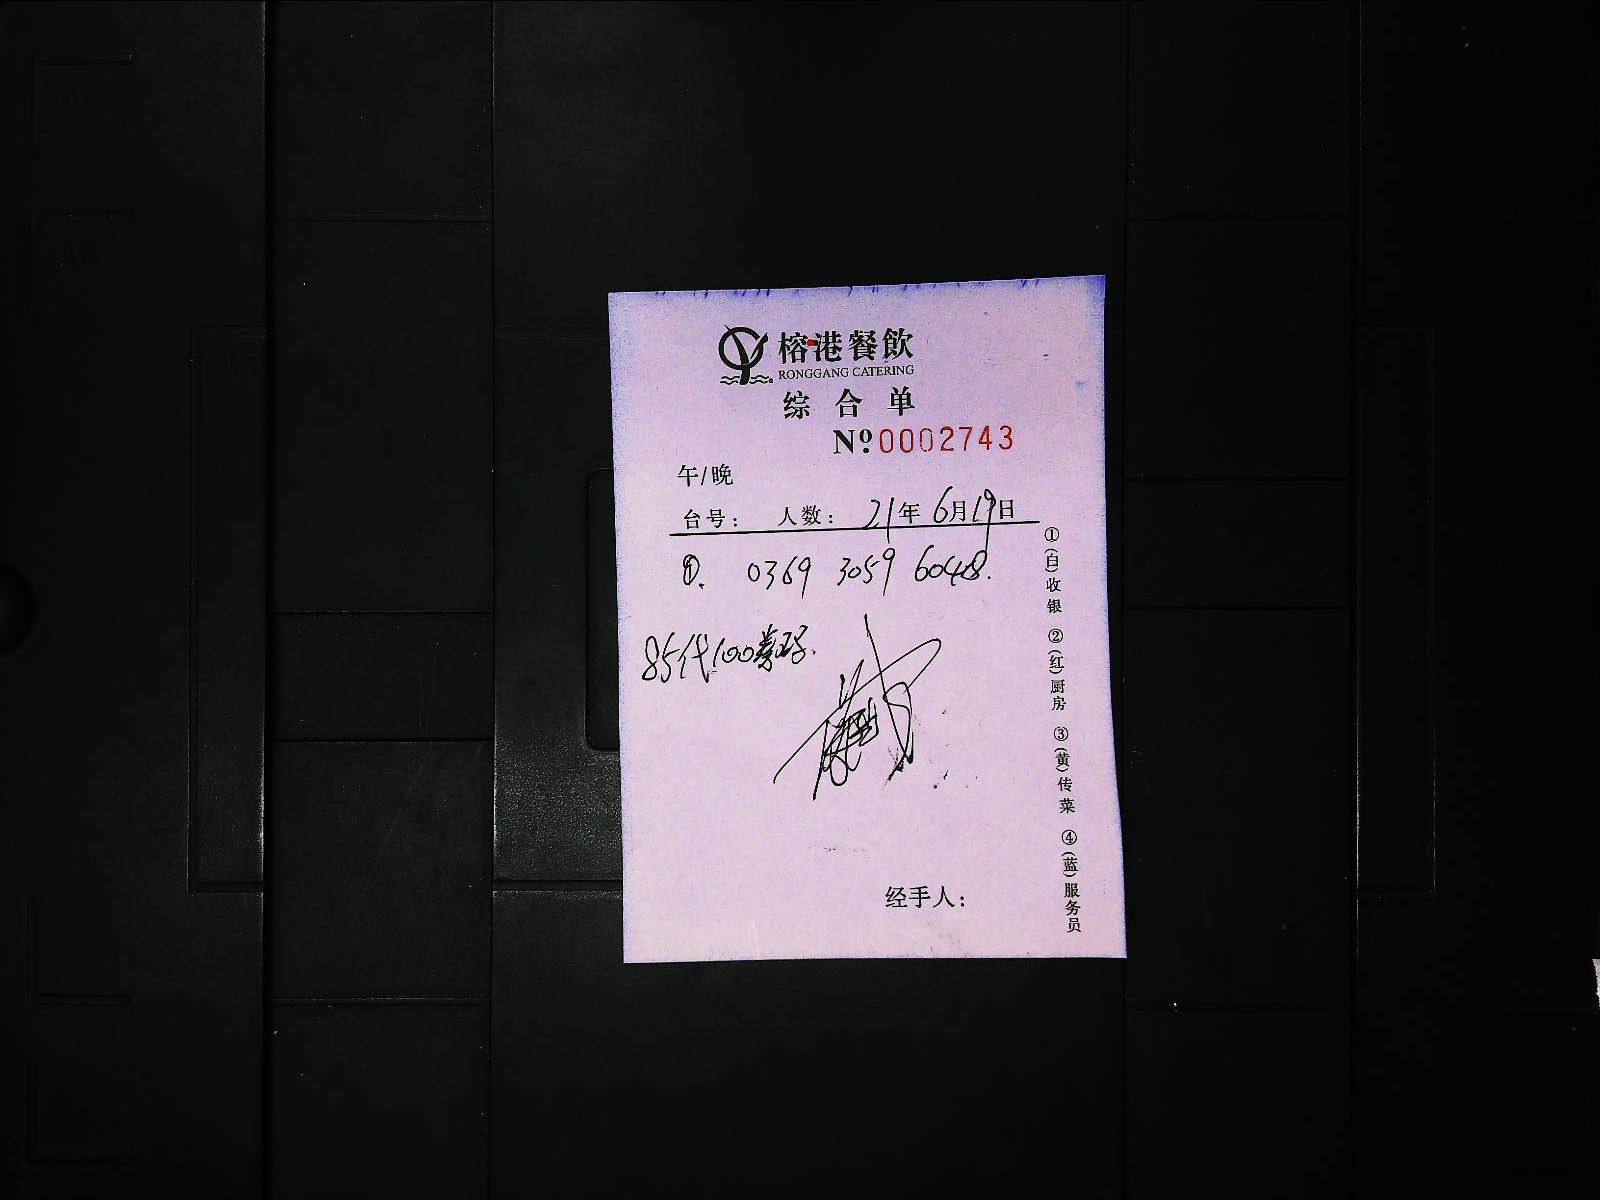 榕港餐飲
RONGGANG CATERING
综合单
Nº 0002743
午/晚
台号： 人数： 21年6月19日
①. 0369 3059 6048.
85代100券码.
经手人：
①(白)收银 ②(红)厨房 ③(黄)传菜 ④(蓝)服务员